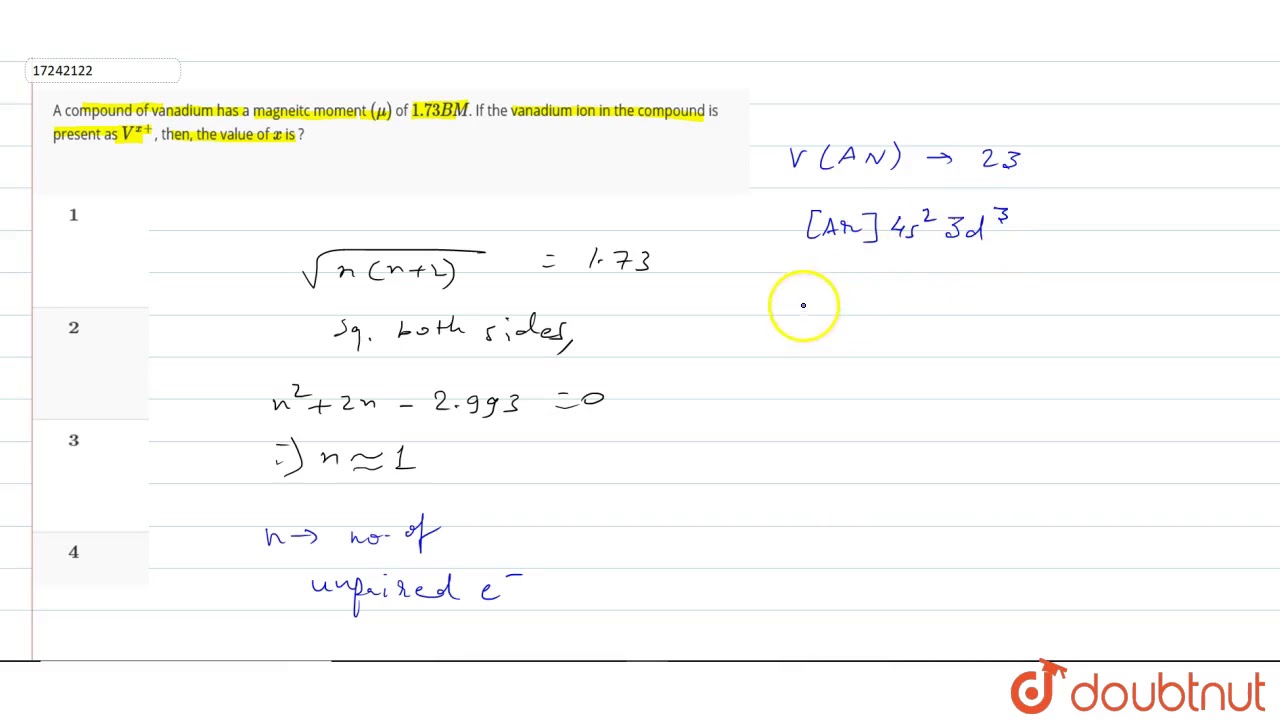 17242122
A compound of vanadium has a magneitc moment (μ) of 1.73BM. If the vanadium ion in the compound is
present as V^{x+}, then, the value of x is ?
1
2
3
4
√n(n+2) = 1.73
Sq. both sides,
n² + 2n - 2.993 = 0
=) n ≈ 1
n → no. of
unpaired e⁻
V (AN) → 23
[Ar] 4s² 3d³
doubtnut